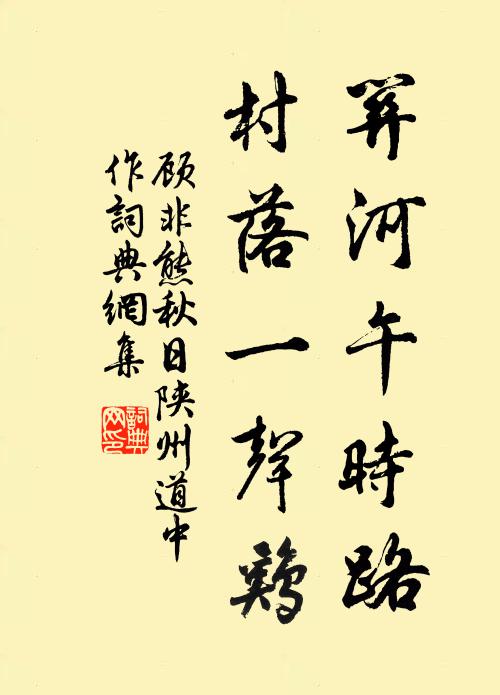 關河午時路
村落一聲鷄
顧非熊秋日陝州道中
作詞典網集
詞典
网印